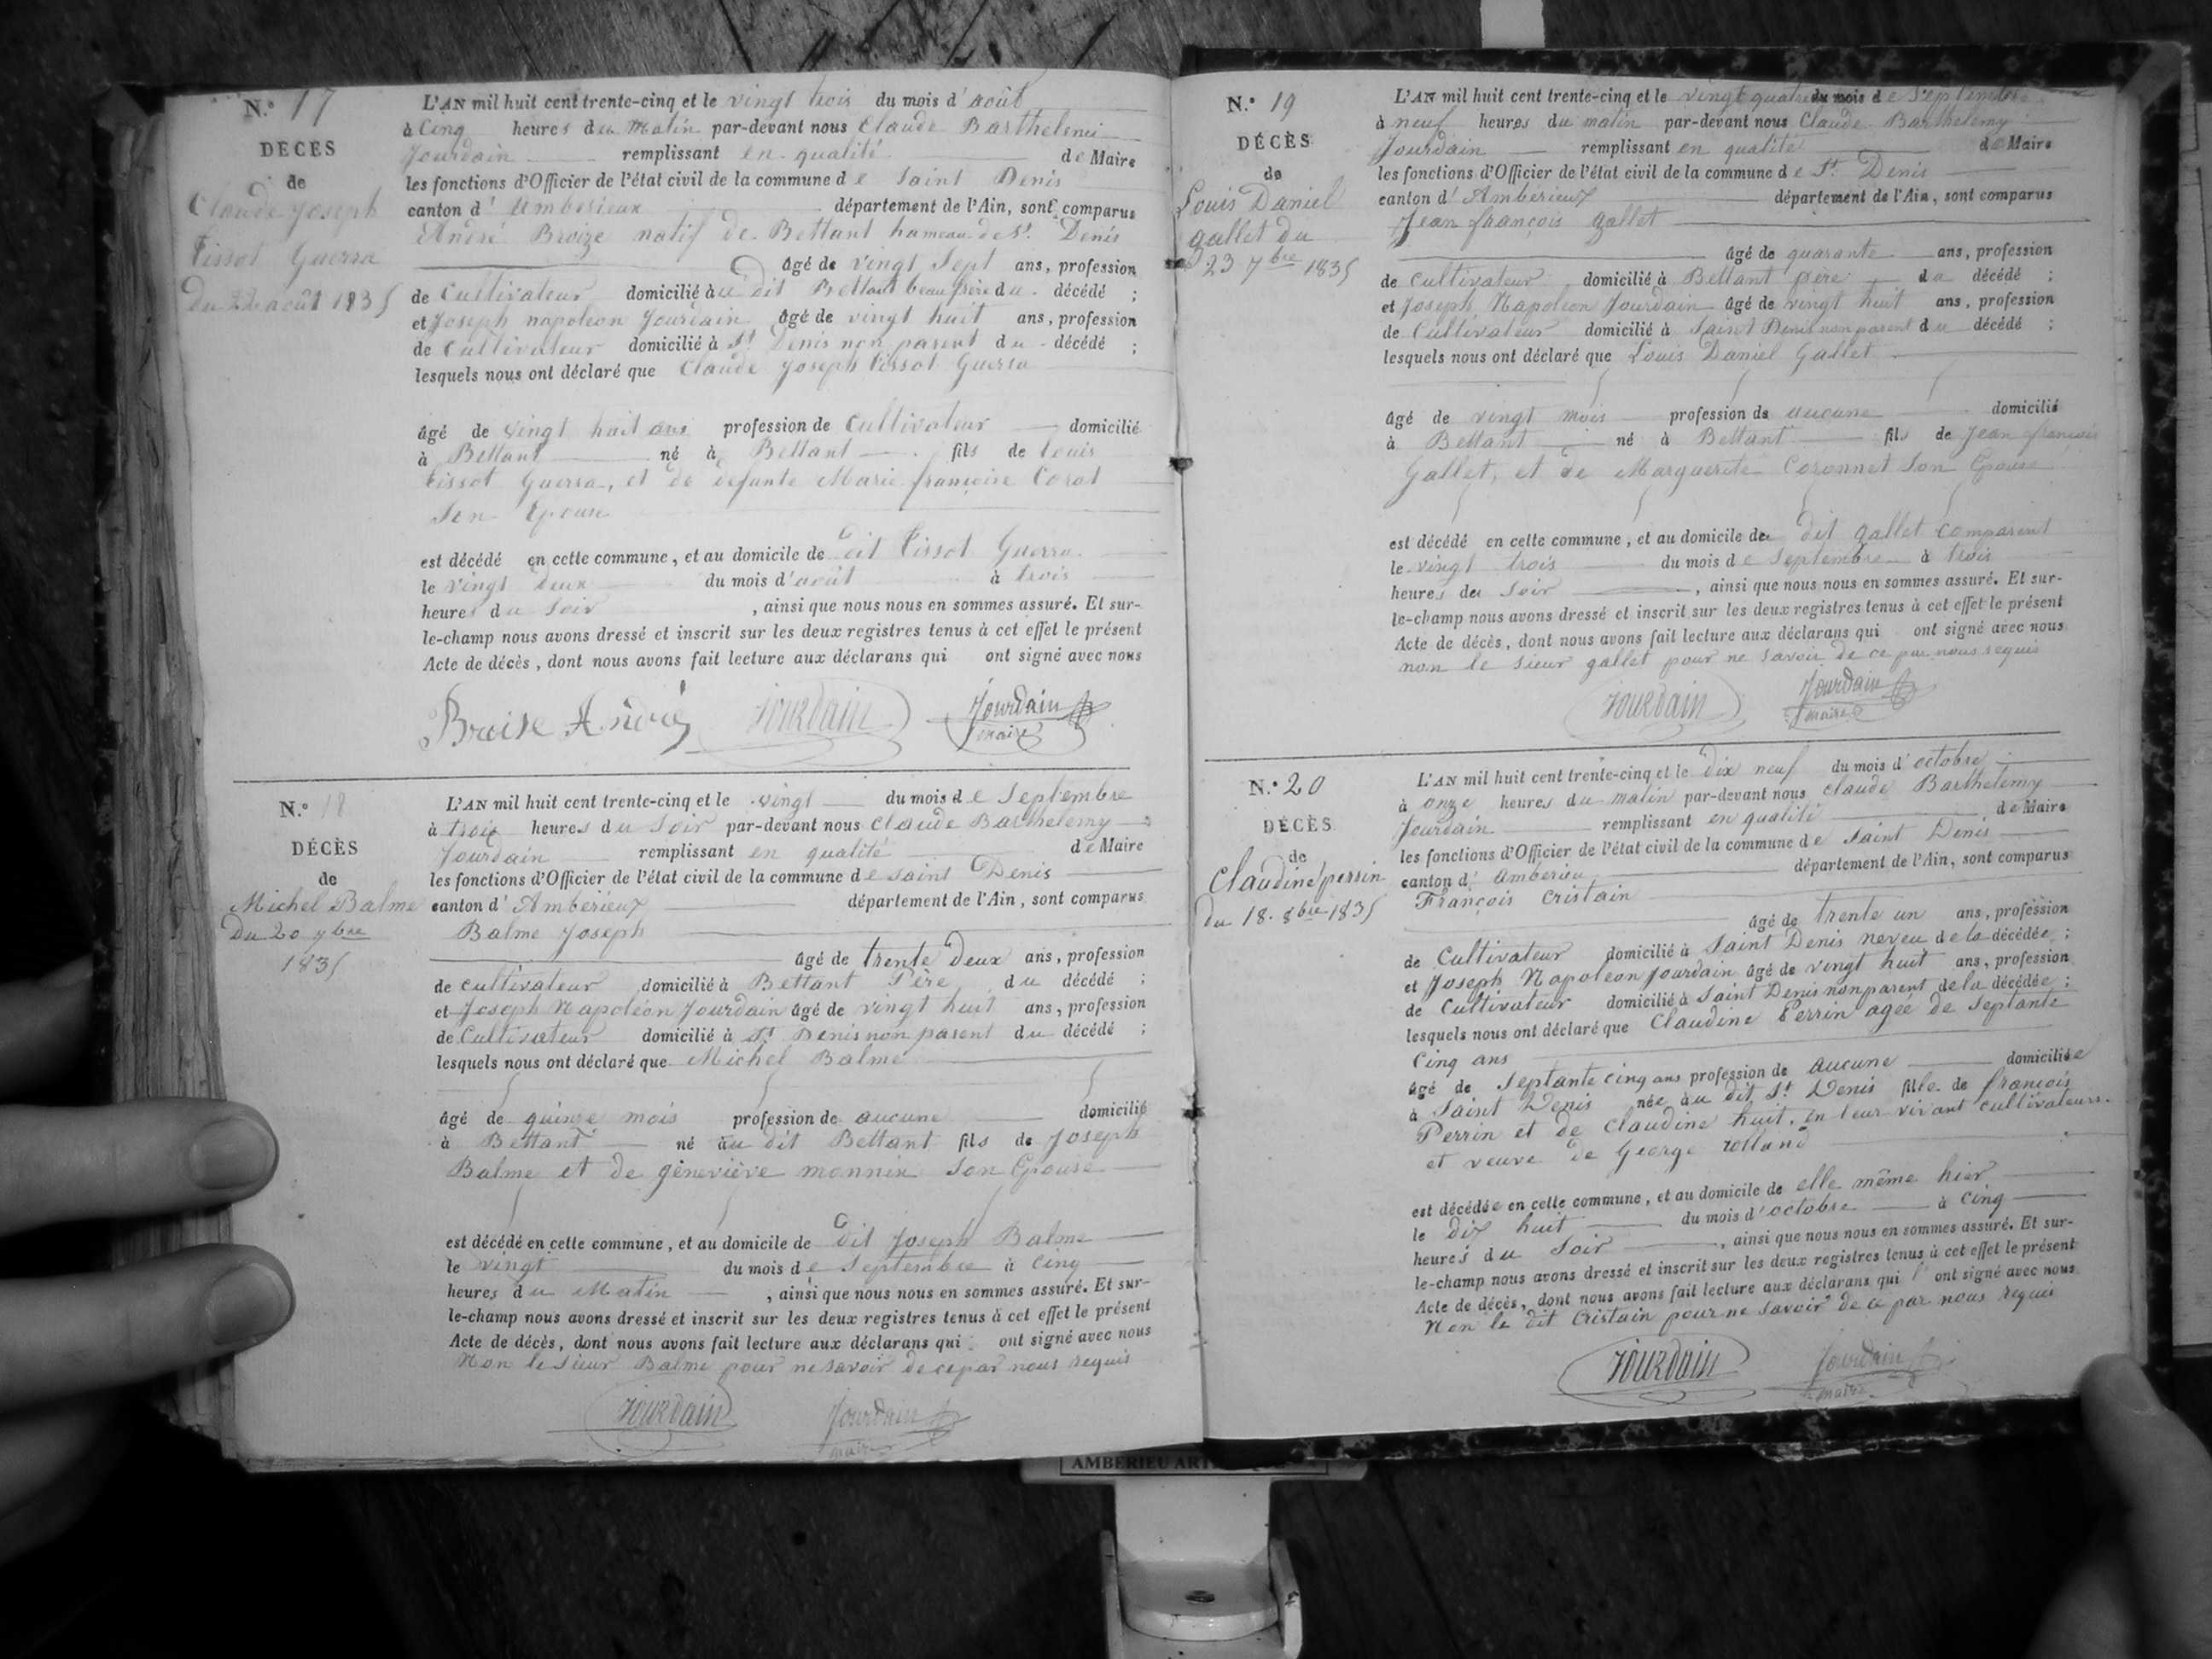 N.° 17
DÉCÈS
de
Claude Joseph
tissot Guerra
du 22 août 1835
L'AN mil huit cent trente-cinq et le vingt trois du mois d'août
à Cinq heures du Matin par-devant nous Claude Barthelemi
Jourdain remplissant en qualité de Maire
les fonctions d'Officier de l'état civil de la commune de Saint Denis
canton d'Amberieux département de l'Ain, sont comparus
André Broize natif de Bettant hameau de St. Denis
âgé de vingt Sept ans, profession
de Cultivateur domicilié au dit Bettant beau frère du décédé ;
et Joseph napoleon Jourdain âgé de vingt huit ans, profession
de Cultivateur domicilié à St. Denis non parent du décédé ;
lesquels nous ont déclaré que Claude Joseph tissot Guerra
âgé de vingt huit ans profession de Cultivateur domicilié
à Bettant né à Bettant fils de louis
tissot Guerra, et de defunte Marie françoise Corat
Son Epouse
est décédé en cette commune, et au domicile de dit tissot Guerra
le vingt deux du mois d'août à trois
heures du Soir, ainsi que nous nous en sommes assuré. Et sur-
le-champ nous avons dressé et inscrit sur les deux registres tenus à cet effet le présent
Acte de décès, dont nous avons fait lecture aux déclarans qui ont signé avec nous
Broise André Jourdain Jourdain
maire
N.° 18
DÉCÈS
de
Michel Balme
Du 20 7bre
1835
L'AN mil huit cent trente-cinq et le vingt du mois de Septembre
à trois heures du Soir par-devant nous Claude Barthelemy
Jourdain remplissant en qualité de Maire
les fonctions d'Officier de l'état civil de la commune de Saint Denis
canton d'Ambérieux département de l'Ain, sont comparus
Balme Joseph
âgé de trente Deux ans, profession
de cultivateur domicilié à Bettant Père du décédé ;
et Joseph Napoléon Jourdain âgé de vingt huit ans, profession
de Cultivateur domicilié à St. Denis non parent du décédé ;
lesquels nous ont déclaré que Michel Balme
âgé de quinze mois profession de aucune domicilié
à Bettant né au dit Bettant fils de Joseph
Balme et de géneviève monnin Son Epouse
est décédé en cette commune, et au domicile de dit Joseph Balme
le vingt du mois de Septembre à Cinq
heures du Matin, ainsi que nous nous en sommes assuré. Et sur-
le-champ nous avons dressé et inscrit sur les deux registres tenus à cet effet le présent
Acte de décès, dont nous avons fait lecture aux déclarans qui ont signé avec nous
Non le Sieur Balme pour ne savoir de ce par nous requis
Jourdain Jourdain
maire
N.° 19
DÉCÈS
de
Louis Daniel
gallet du
23 7bre 1835
L'AN mil huit cent trente-cinq et le vingt quatre du mois de Septembre
à neuf heures du matin par-devant nous Claude Barthelemy
Jourdain remplissant en qualité de Maire
les fonctions d'Officier de l'état civil de la commune de St. Denis
canton d'Ambérieux département de l'Ain, sont comparus
Jean françois gallet
âgé de quarante ans, profession
de Cultivateur domicilié à Bettant père du décédé ;
et Joseph Napoléon Jourdain âgé de vingt huit ans, profession
de Cultivateur domicilié à Saint Denis non parent du décédé ;
lesquels nous ont déclaré que Louis Daniel Gallet
âgé de vingt mois profession de aucune domicilié
à Bettant né à Bettant fils de Jean françois
Gallet, et de Marguerite Coronnet Son Epouse
est décédé en cette commune, et au domicile de dit gallet comparent
le vingt trois du mois de Septembre à trois
heures du Soir, ainsi que nous nous en sommes assuré. Et sur-
le-champ nous avons dressé et inscrit sur les deux registres tenus à cet effet le présent
Acte de décès, dont nous avons fait lecture aux déclarans qui ont signé avec nous
non le sieur gallet pour ne savoir de ce par nous requis
Jourdain Jourdain
maire
N.° 20
DÉCÈS
de
Claudine perrin
du 18. 8bre 1835
L'AN mil huit cent trente-cinq et le dix neuf du mois d'octobre
à onze heures du matin par-devant nous claude Barthelemy
Jourdain remplissant en qualité de Maire
les fonctions d'Officier de l'état civil de la commune de Saint Denis
canton d'Amberieu département de l'Ain, sont comparus
François Cristain
âgé de trente un ans, profession
de Cultivateur domicilié à Saint Denis neveu de la décédée ;
et Joseph Napoléon Jourdain âgé de vingt huit ans, profession
de Cultivateur domicilié à Saint Denis non parent de la décédée ;
lesquels nous ont déclaré que Claudine Perrin agée de Septante
Cinq ans
âgé de Septante cinq ans profession de aucune domiciliée
à Saint Denis née au dit St Denis fille de françois
Perrin et de Claudine huit, en leur vivant cultivateurs.
et veuve de George rolland
est décédée en cette commune, et au domicile de elle même hier
le dix huit du mois d'octobre à Cinq
heures du Soir, ainsi que nous nous en sommes assuré. Et sur-
le-champ nous avons dressé et inscrit sur les deux registres tenus à cet effet le présent
Acte de décès, dont nous avons fait lecture aux déclarans qui l'ont signé avec nous
Non le dit Cristain pour ne savoir de ce par nous requis
Jourdain Jourdain
maire
AMBERIEU